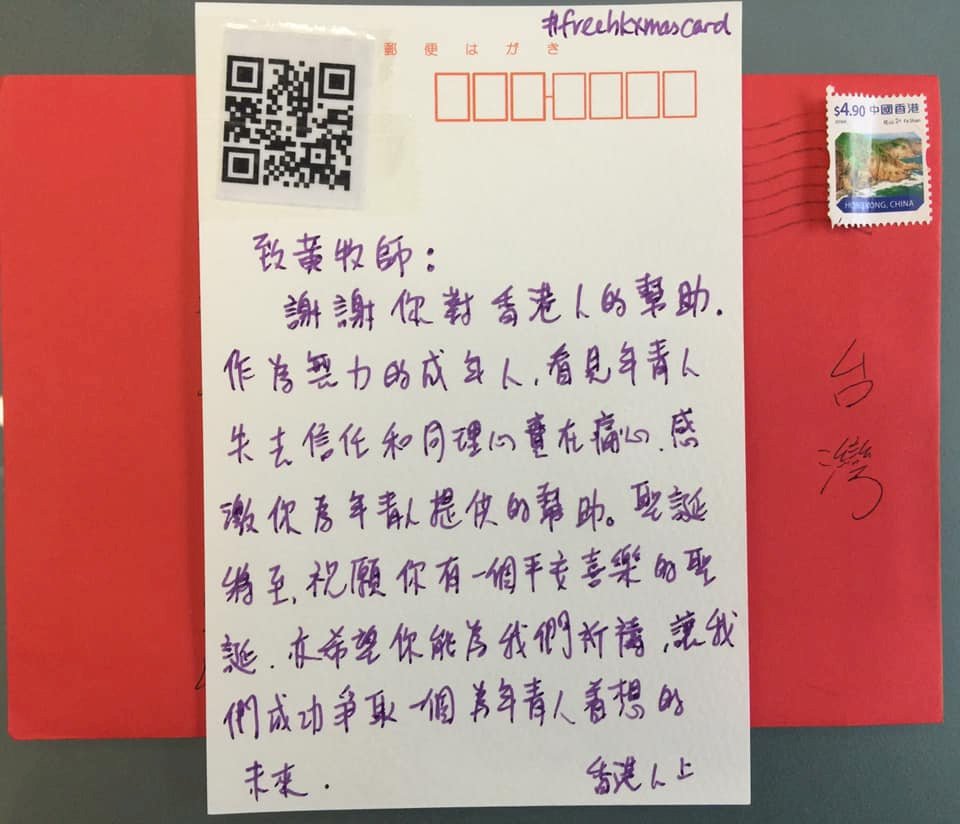 #freehkxmascard
郵便はがき
$4.90 中國香港
HONG KONG, CHINA
致黃牧師：
謝謝你對香港人的幫助.
作為無力的成年人,看見年青人
失去信任和同理心實在痛心.感
激你為年青人提供的幫助。聖誕
將至,祝願你有一個平安喜樂的聖
誕.亦希望你能為我們祈禱,讓我
們成功爭取一個為年青人着想的
未來.
香港人上
台灣